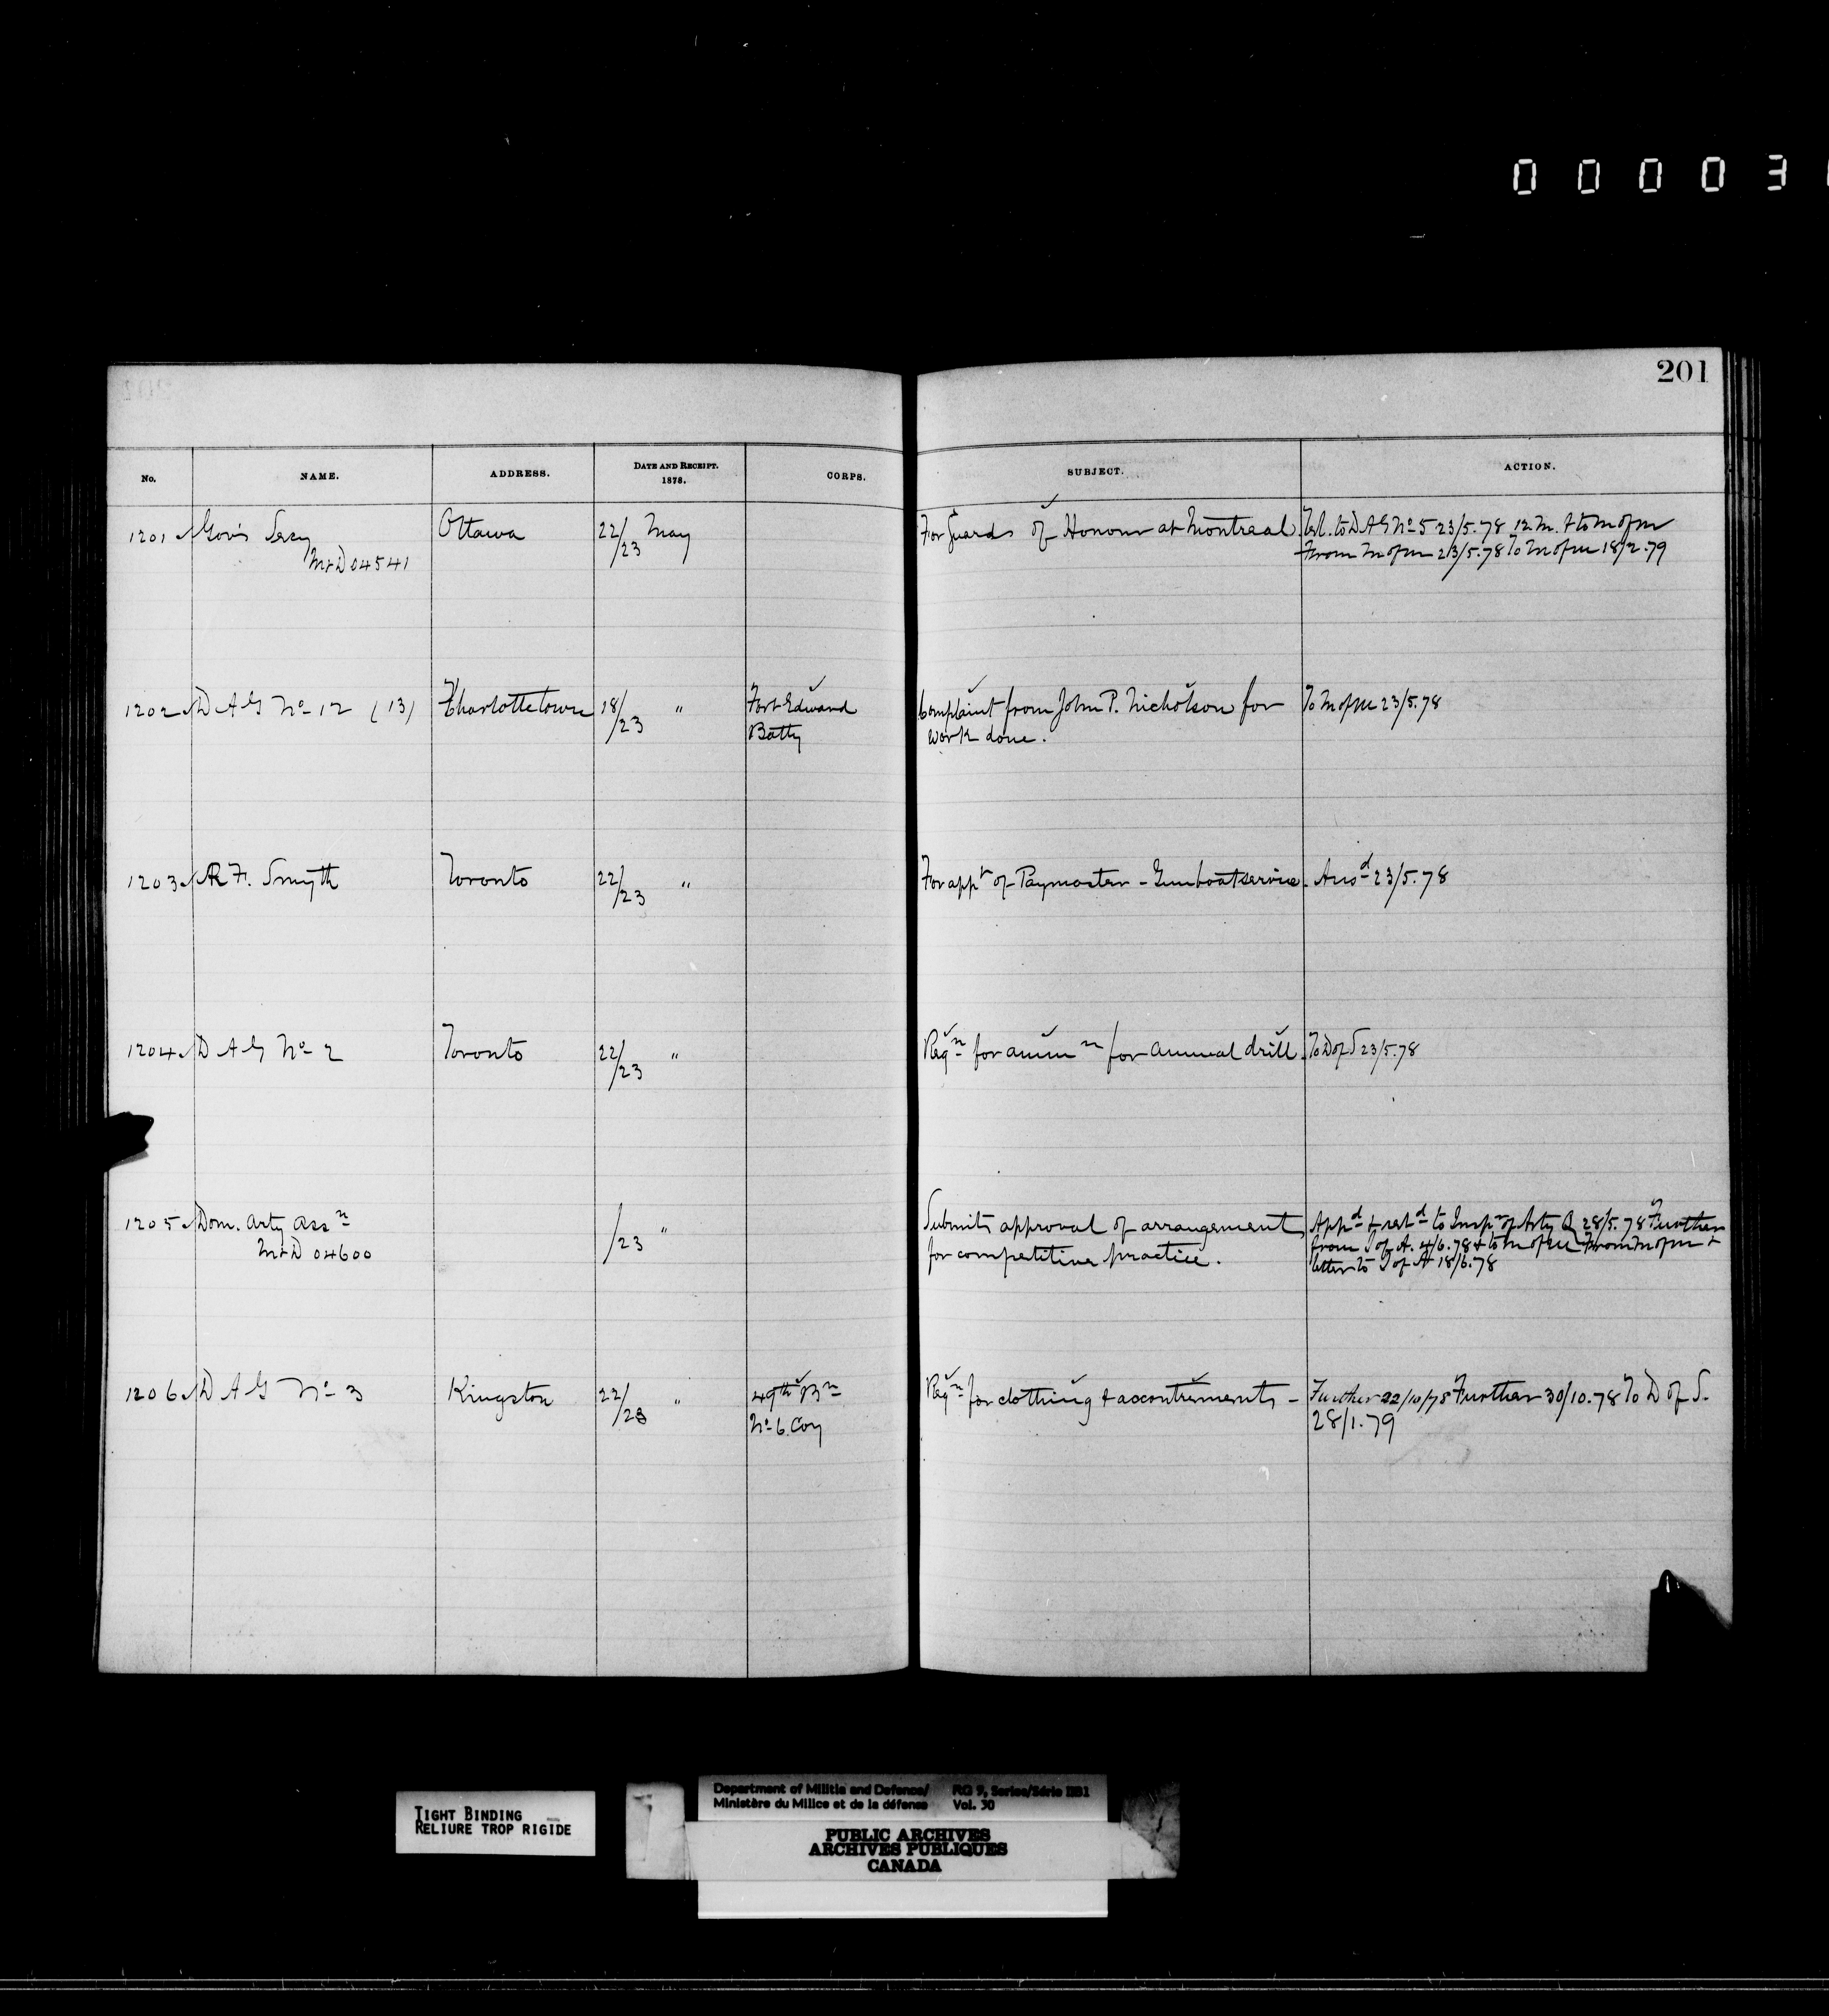 0 0 0 0 3
201
No. NAME. ADDRESS. DATE AND RECEIPT. 1878. CORPS. SUBJECT. ACTION.
1201 Gov's Secy Ottawa 22/23 May For Guards of Honour at Montreal. Tel. to D A G No 5 23/5.78 12 M. & to M of M
M & D 04541 From M of M 23/5.78 To M of M 18/2.79
1202 D A G No 12 (13) Charlottetown 18/23 " Fort Edward Complaint from John P. Nicholson for To M of M 23/5.78
Batty work done.
1203 R F. Smyth Toronto 22/23 " For appt of Paymaster - Gunboat service. Ansd 23/5.78
1204 D A G No 2 Toronto 22/23 " Reqn for ammn for annual drill. To D of S 23/5.78
1205 Dom. Arty Assn /23 " Submits approval of arrangements Appd & retd to Inspr of Arty Q 28/5.78 Further
M & D 04600 for competitive practice. from I of A. 4/6.78 & to M of M From M of M &
letter to I of A 18/6.78
1206 D A G No 3 Kingston 22/23 " 49th Bn Reqn for clothing & accoutrements - Further 22/10/78 Further 30/10.78 To D of S.
No 6 Coy 28/1.79
TIGHT BINDING
RELIURE TROP RIGIDE
Department of Militia and Defence/ RG 9, Series/Série IIB1
Ministère du Milice et de la défense Vol. 30
PUBLIC ARCHIVES
ARCHIVES PUBLIQUES
CANADA